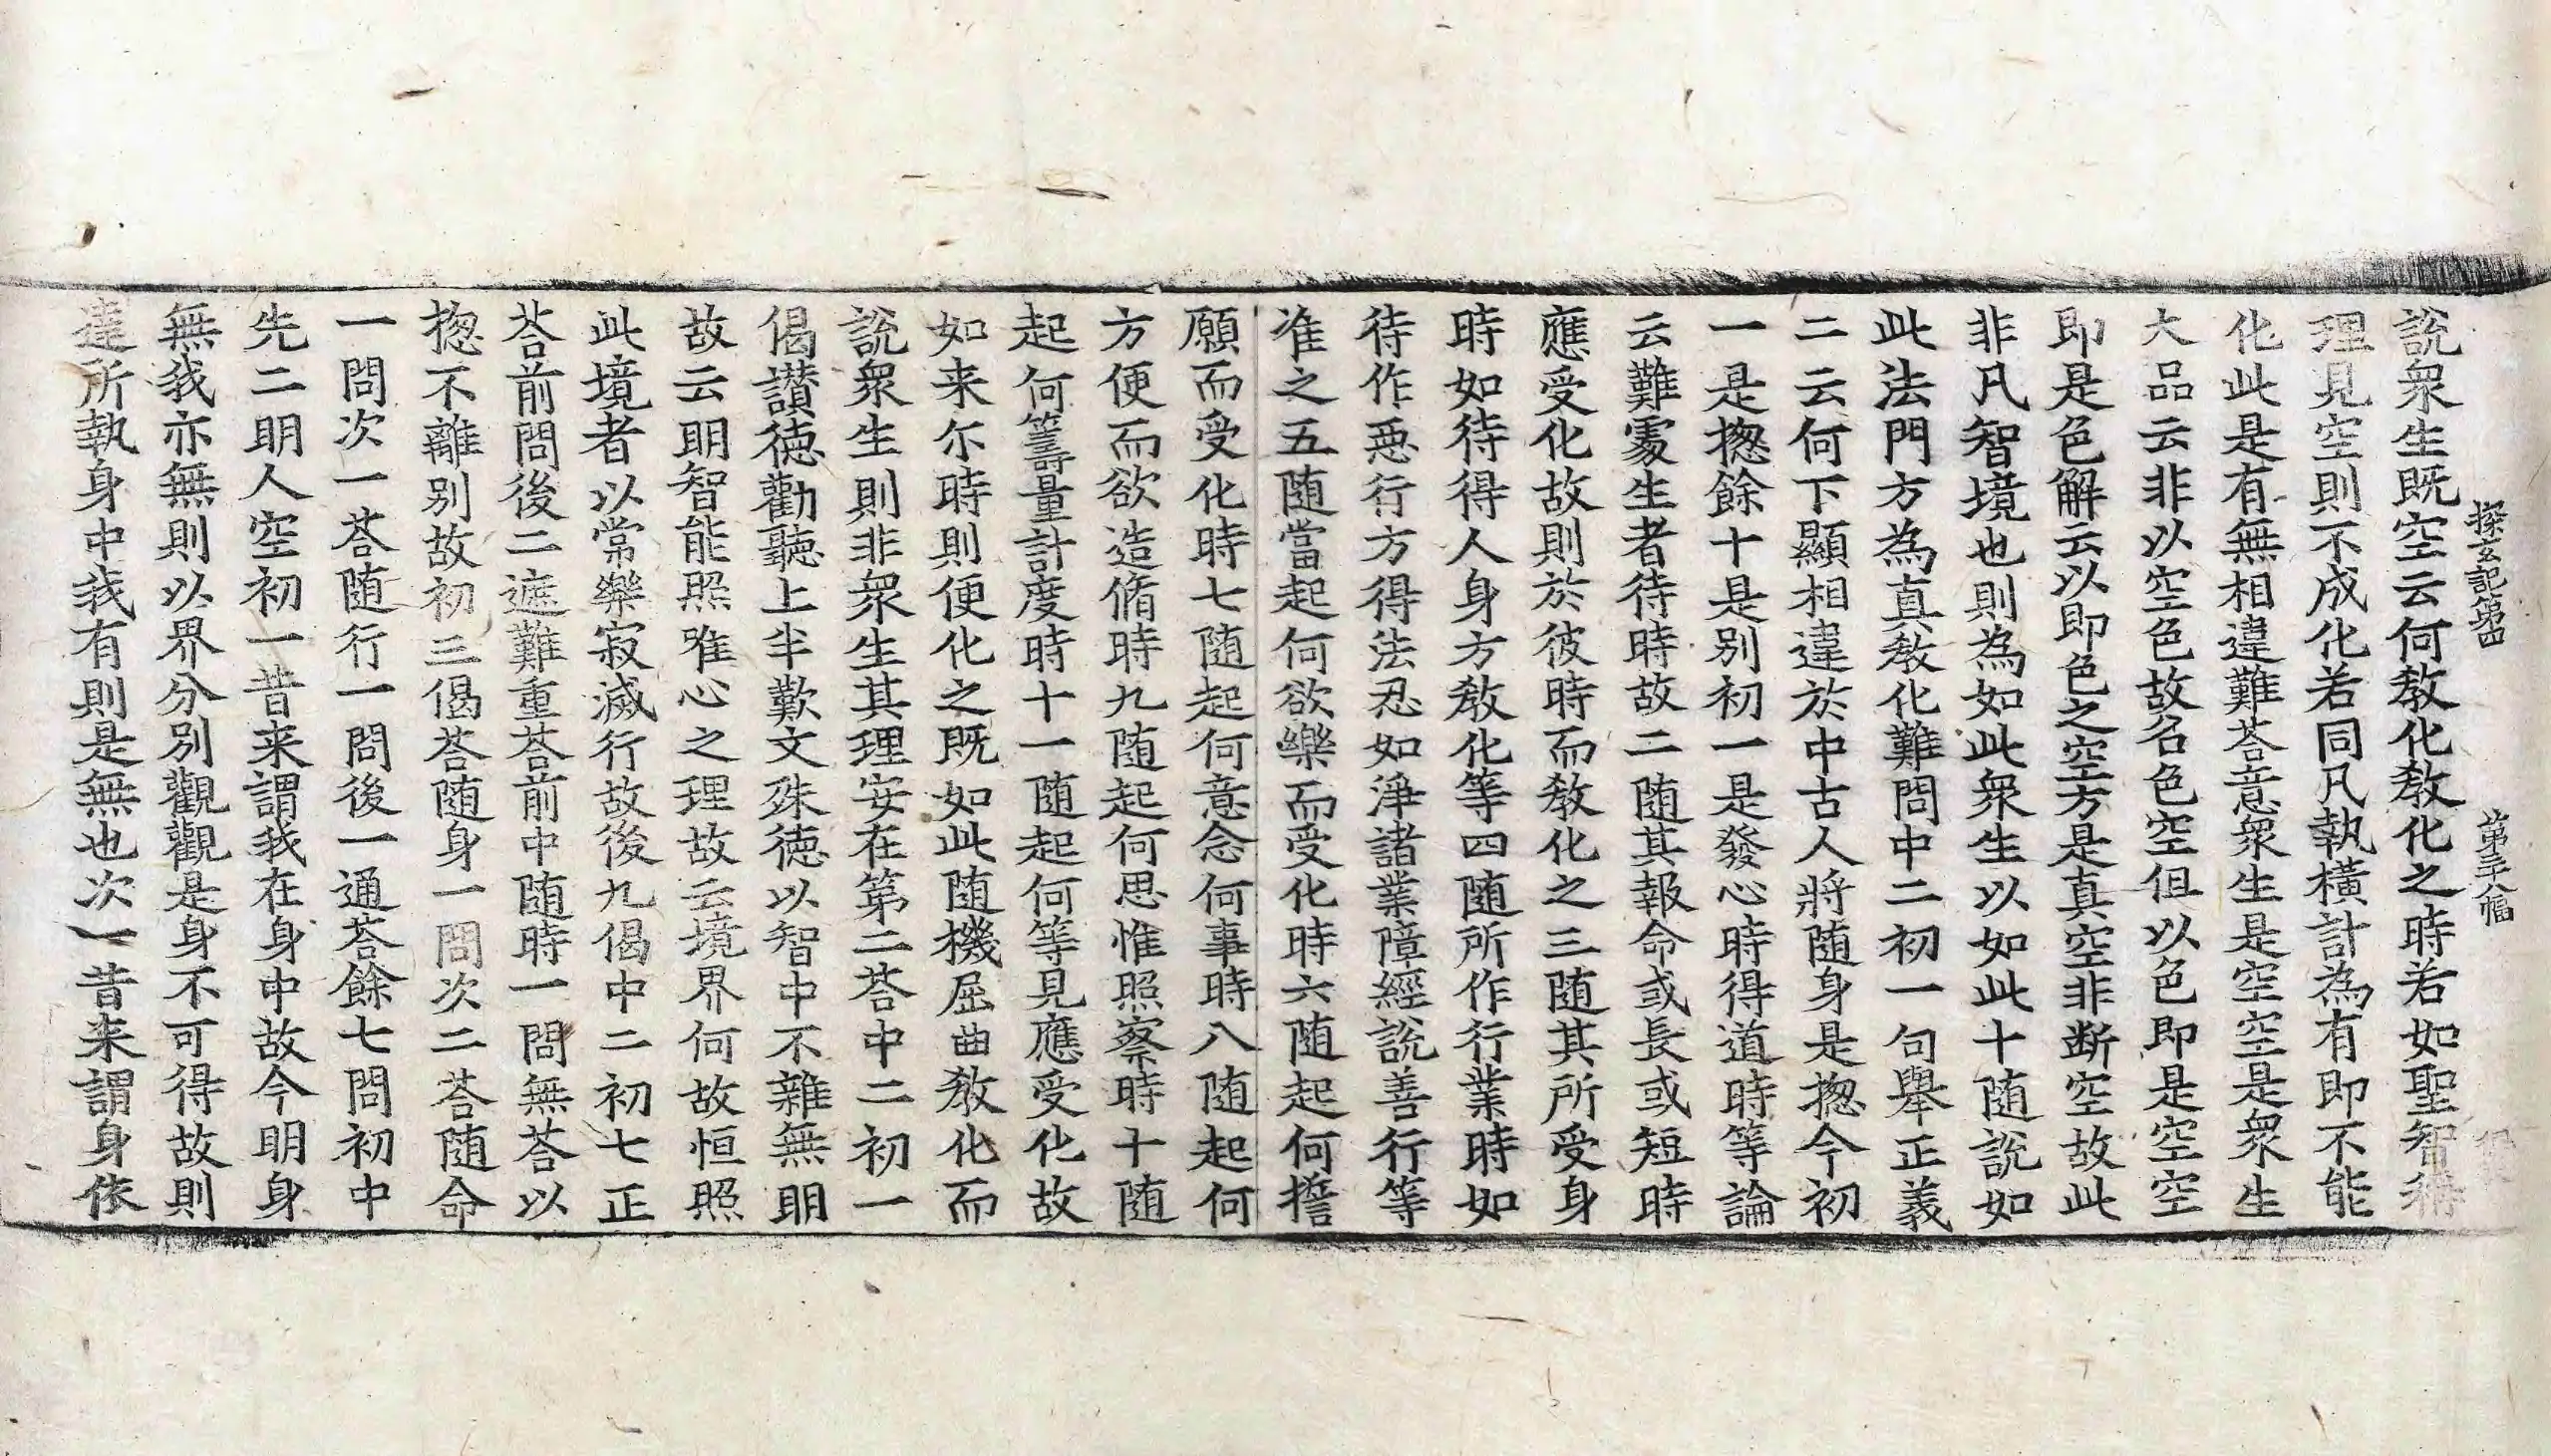 探玄記第四 第三十八幅
説衆生既空云何教化教化之時若如聖智稱
理見空則不成化若同凡執横計為有即不能
化此是有無相違難荅意衆生是空空是衆生
大品云非以空色故名色空但以色即是空空
即是色解云以即色之空方是真空非断空故此
非凡智境也則為如此衆生以如此十随說如
此法門方為真教化難問中二初一句舉正義
二云何下顯相違於中古人將随身是揔今初
一是揔餘十是別初一是發心時得道時等論
云難處生者待時故二随其報命或長或短時
應受化故則於彼時而教化之三随其所受身
時如待得人身方教化等四随所作行業時如
待作惡行方得法忍如淨諸業障經說善行等
准之五随當起何欲樂而受化時六随起何擔
願而受化時七随起何意念何事時八随起何
方便而欲造脩時九随起何思惟照察時十随
起何籌量計度時十一随起何等見應受化故
如来尓時則便化之既如此随機屈曲教化而
說衆生則非衆生其理安在第二荅中二初一
偈讃徳勸聽上半歎文殊徳以智中不雜無明
故云明智能照唯心之理故云境界何故恒照
此境者以常樂寂滅行故後九偈中二初七正
荅前問後二遮難重荅前中随時一問無荅以
揔不離別故初三偈荅随身一問次二荅随命
一問次一荅随行一問後一通荅餘七問初中
先二明人空初一昔来謂我在身中故今明身
無我亦無則以界分別觀觀是身不可得故則
達所執身中我有則是無也次一昔来謂身依